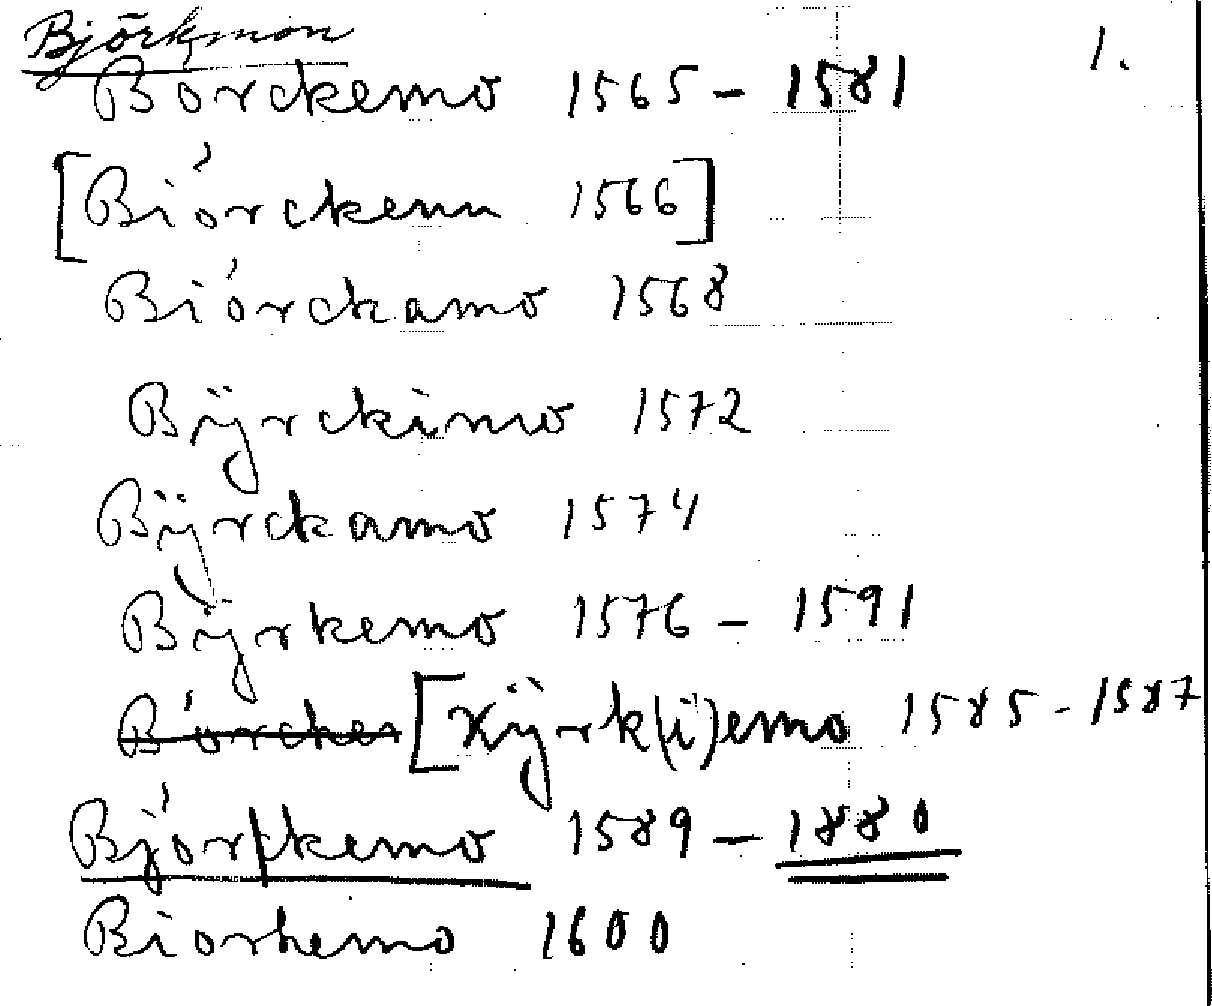 Björkmon 1.
Börckemo 1565 – 1581
[Biórckenn 1566]
Biórckamo 1568
Bÿrckimo 1572
Bÿrckamo 1574
Bÿrkemo 1576 – 1591
Biórcker [Xÿrk(i)emo 1585 - 1587
Bjórckemo 1589 – 1880
Biorkemo 1600